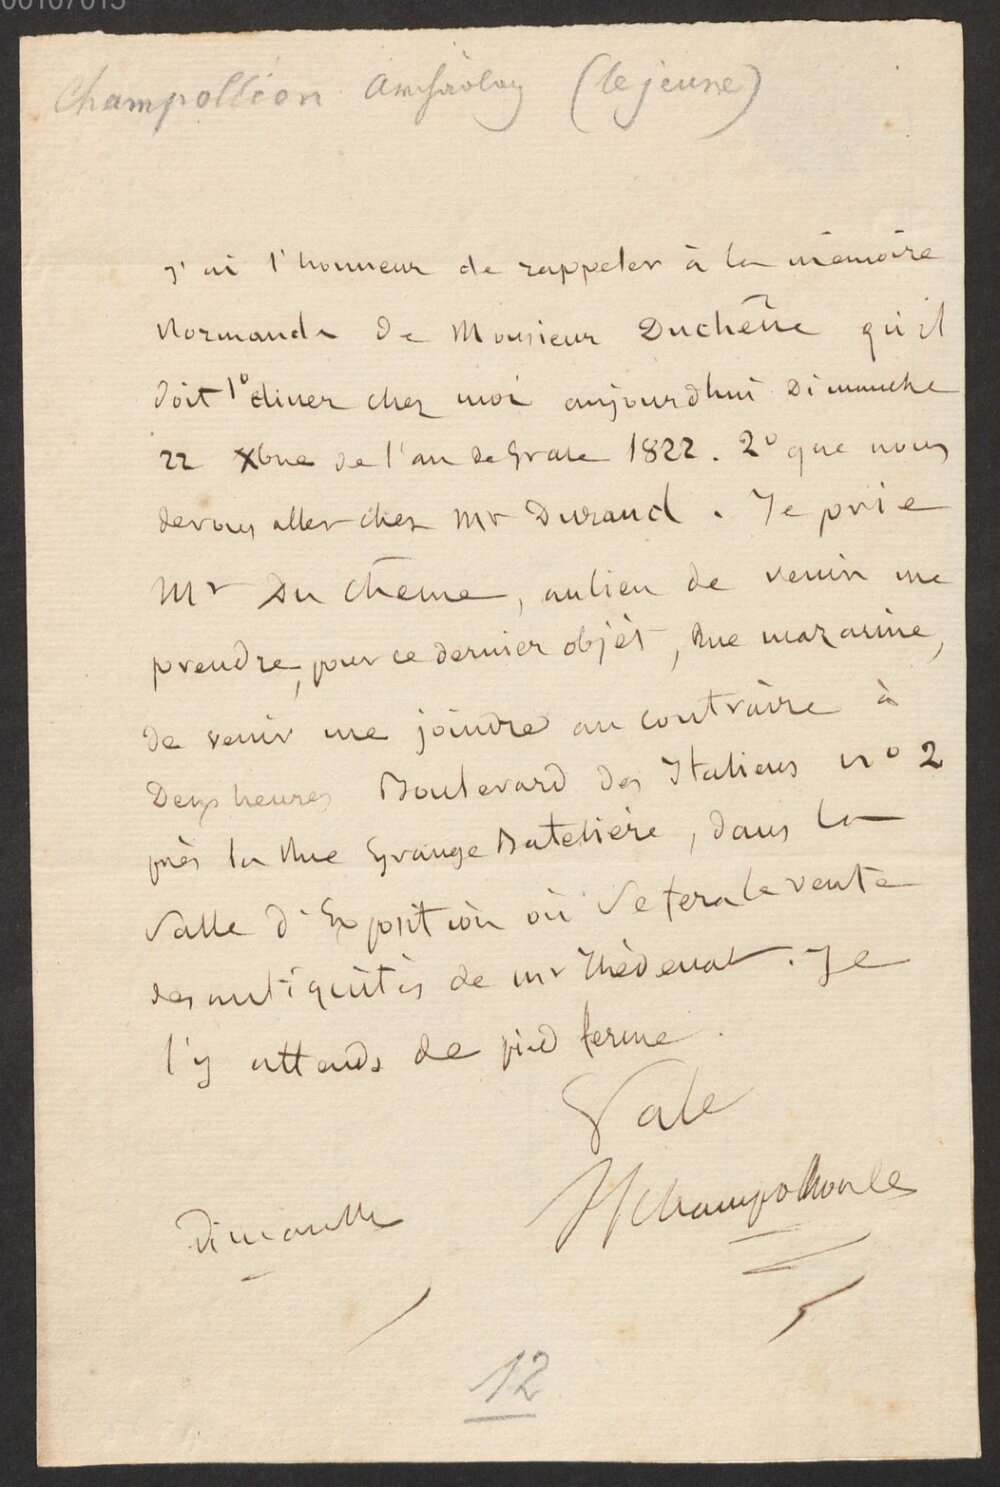 00107015
Champolléon Archäolog (le jeune)
J'ai l'honneur de rappeler à la mémoire
Normande de Monsieur Duchêne qu'il
doit 1° diner chez moi aujourdhui Dimanche
22 Xbre de l'an de Grace 1822. 2° que nous
devons aller chez Mr Durand. Je prie
Mr Du Chêne, aulieu de venir me
prendre, pour ce dernier objèt, Rue mazarine,
de venir me joindre au contraire à
Deux heures Boulevard des Italiens n° 2
près la Rue Grange Batelière, dans la
Salle d'Exposition où se fera la vente
des antiquités de mr Thédenat. Je
l'y attends de pied ferme.
Vale
Dimanche
JfChampollionle
12